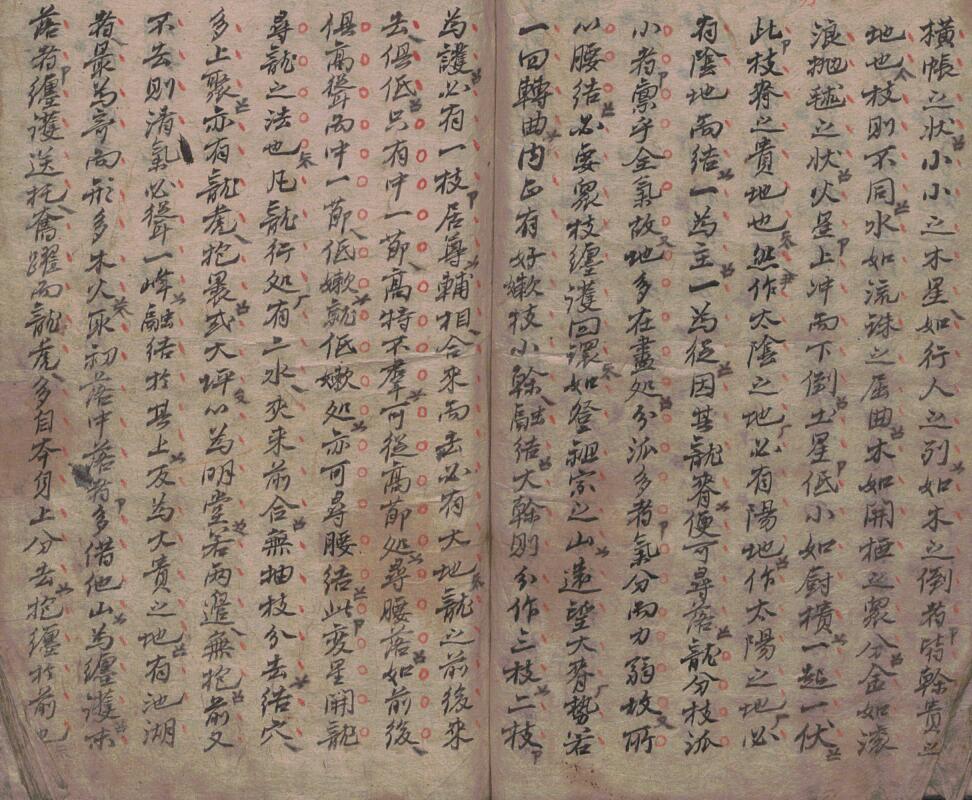 橫帳之狀小小之木星如行人之列如木之倒者皆幹貴之
地也枝則不同水如流珠之屈曲木如開極之眾分金如滾
浪抛毬之狀火星上冲而下倒土星低小如廚横一起一伏
此枝脊之貴地也然作太陰之地必有陽地作太陽之地必
有陰地而結一為主一為従因其龍脊便可尋落龍分枝派
小者禀乎全氣故地多在盡処分派多者氣分而力弱故所
以腰結必要眾枝纏護回環如登祖宗之山遠望大脊勢若
一回轉曲内必有好嫩枝小幹融結大幹則分作三枝二枝
為護必有一枝居尊輔相合来而去必有大地龍之前後来
去俱低只有中一莭高特不羣可從髙莭処尋腰落如前後
俱高聳而中一莭低嫩就低嫩処亦可尋腰結此変星開龍
尋龍之法也凡龍行処有二水夾来前合無抽枝分去结穴
多上聚亦有龍虎抱褁或大坪以為明堂若两邉無抱前又
不去則清氣必聳一峰融结扵其上反為大貴之地有池湖
者最為竒而形多木火取初落中落者多借他山為纏護末
落者纏護送托奮躍而龍虎多自夲身上分去抱纏扵前也